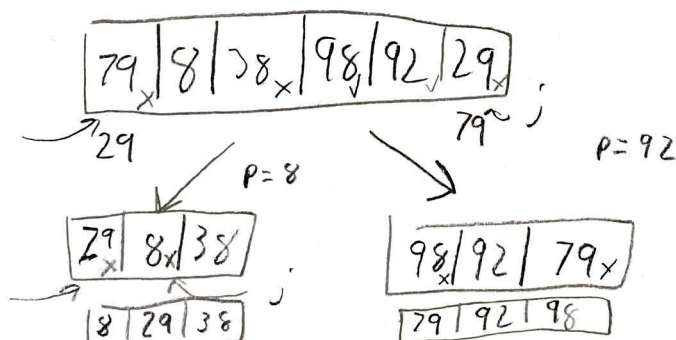 79 8 38 98 92 29
29 79 j
p=8 p=92
29 8 38 98 92 79
j
8 29 38 79 92 98